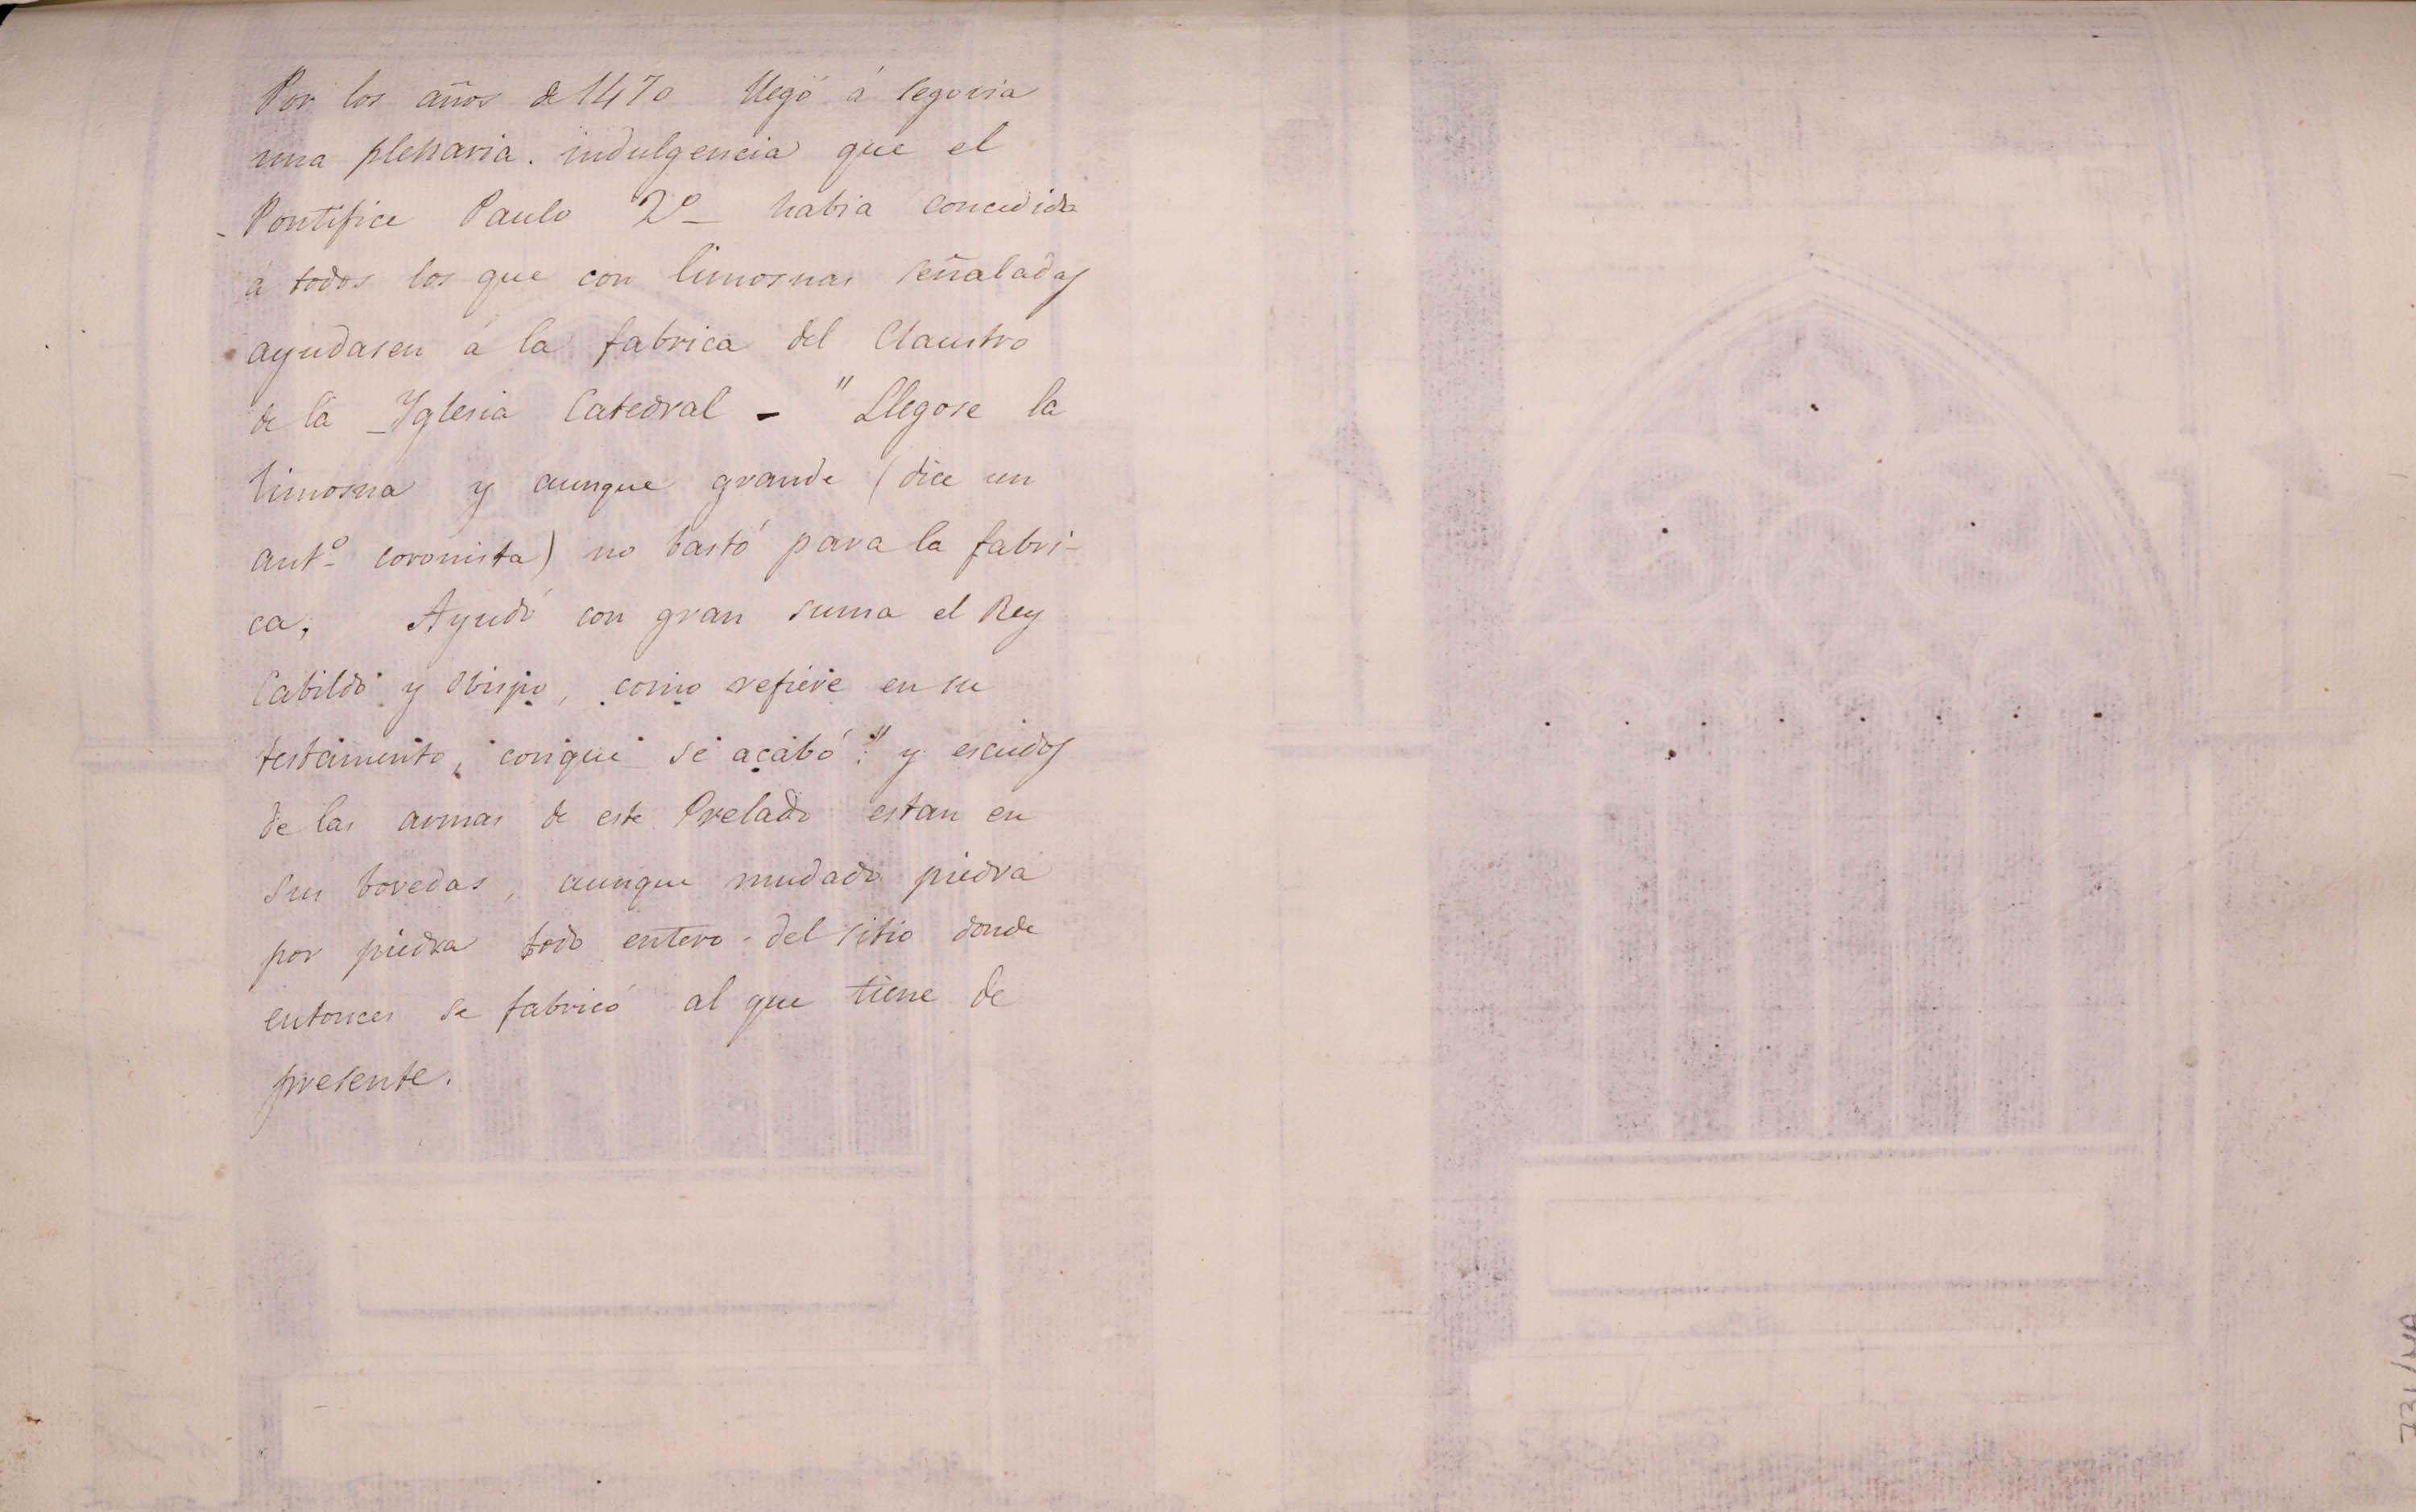 Por los años de 1470 llegó á Segovia
una plenaria indulgencia que el
Pontifice Paulo 2º habia concedido
á todos los que con limosnas señaladas
ayudasen á la fabrica del Claustro
de la Yglesia Catedral - "Llegose la
limosna y aunque grande (dice un
antº coronista) no bastó para la fabri-
ca, Ayudó con gran suma el Rey
Cabildo y Obispo, como refiere en su
testamento, conque se acabó." y escudos
de las armas de este Prelado estan en
sus bovedas, aunque mudado piedra
por piedra todo entero del sitio donde
entonces se fabricó al que tiene de
presente.